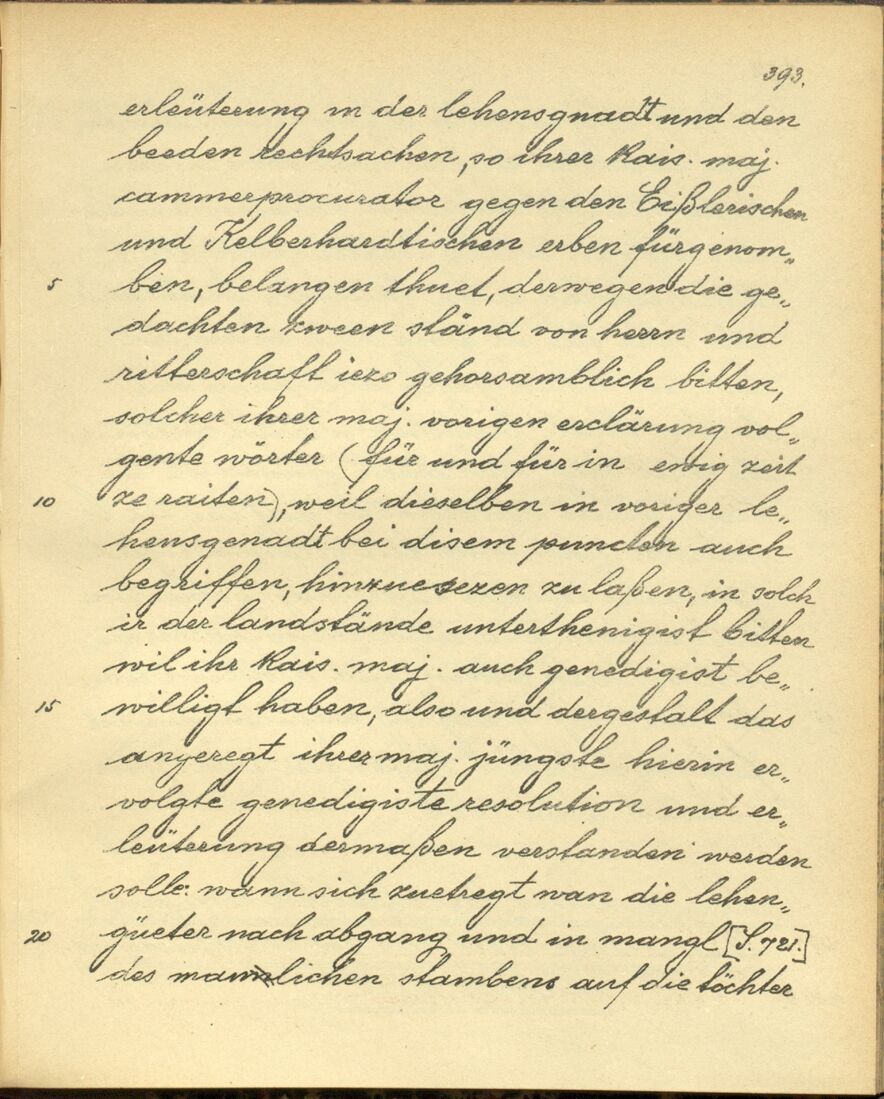 393.
erleüterung in der lehensgnadt und den
beeden rechtsachen, so ihrer kais. maj.
cammerprocurator gegen den Eißlerischen
und Kelberhardtischen erben fürgenom„
5 ben, belangen thuet, derwegen die ge„
dachten zween ständ von herrn und
ritterschaft iezo gehorsamblich bitten,
solcher ihrer maj. vorigen erclärung vol„
gente wörter (für und für in ewig zeit
10 ze raiten), weil dieselben in voriger le„
hensgenadt bei disem puncten auch
begriffen, hinzuesezen zu laßen, in solch
ir der landstände unterthenigist bitten
wil ihr kais. maj. auch genedigist be„
15 willigt haben, also und dergestalt das
angeregt ihrer maj. jüngste hierin er„
volgte genedigiste resolution und er„
leüterung dermaßen verstanden werden
solle: wann sich zuetregt wan die lehen„
20 güeter nach abgang und in mangl [S. 721.]
des manlichen stambens auf die töchter